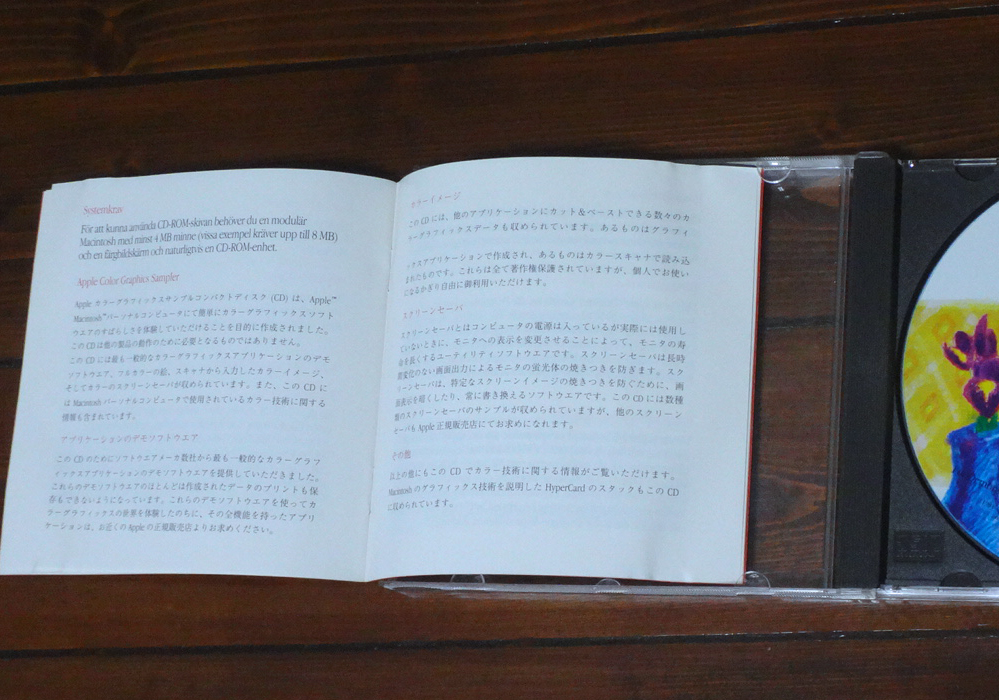 Systemkrav
För att kunna använda CD-ROM-skivan behöver du en modulär
Macintosh med minst 4 MB minne (vissa exempel kräver upp till 8 MB)
och en färgbildskärm och naturligtvis en CD-ROM-enhet.
Apple Color Graphics Sampler
Apple カラーグラフィックスサンプルコンパクトディスク (CD) は、Apple™
Macintosh™パーソナルコンピュータにて簡単にカラーグラフィックスソフト
ウエアのすばらしさを体験していただけることを目的に作成されました。
この CD は他の製品の動作のために必要となるものではありません。
この CD には最も一般的なカラーグラフィックスアプリケーションのデモ
ソフトウエア、フルカラーの絵、スキャナから入力したカラーイメージ、
そしてカラーのスクリーンセーバが収められています。また、この CD に
は Macintosh パーソナルコンピュータで使用されているカラー技術に関する
情報も含まれています。
アプリケーションのデモソフトウエア
この CD のためにソフトウエアメーカ数社から最も一般的なカラーグラフ
ィックスアプリケーションのデモソフトウエアを提供していただきました。
これらのデモソフトウエアのほとんどは作成されたデータのプリントも保
存もできないようになっています。これらのデモソフトウエアを使ってカ
ラーグラフィックスの世界を体験したのちに、その全機能を持ったアプリ
ケーションは、お近くの Apple の正規販売店よりお求めください。
カラーイメージ
この CD には、他のアプリケーションにカット＆ペーストできる数々のカ
ラーグラフィックスデータも収められています。あるものはグラフィ
ックスアプリケーションで作成され、あるものはカラースキャナで読み込
まれたものです。これらは全て著作権保護されていますが、個人でお使い
になるかぎり自由に御利用いただけます。
スクリーンセーバ
スクリーンセーバとはコンピュータの電源は入っているが実際には使用し
ていないときに、モニタへの表示を変更させることによって、モニタの寿
命を長くするユーティリティソフトウエアです。スクリーンセーバは長時
間変化のない画面出力によるモニタの蛍光体の焼きつきを防ぎます。スク
リーンセーバは、特定なスクリーンイメージの焼きつきを防ぐために、画
面表示を暗くしたり、常に書き換えるソフトウエアです。この CD には数種
類のスクリーンセーバのサンプルが収められていますが、他のスクリーン
セーバも Apple 正規販売店にてお求めになれます。
その他
以上の他にもこの CD でカラー技術に関する情報がご覧いただけます。
Macintosh のグラフィックス技術を説明した HyperCard のスタックもこの CD
に収められています。